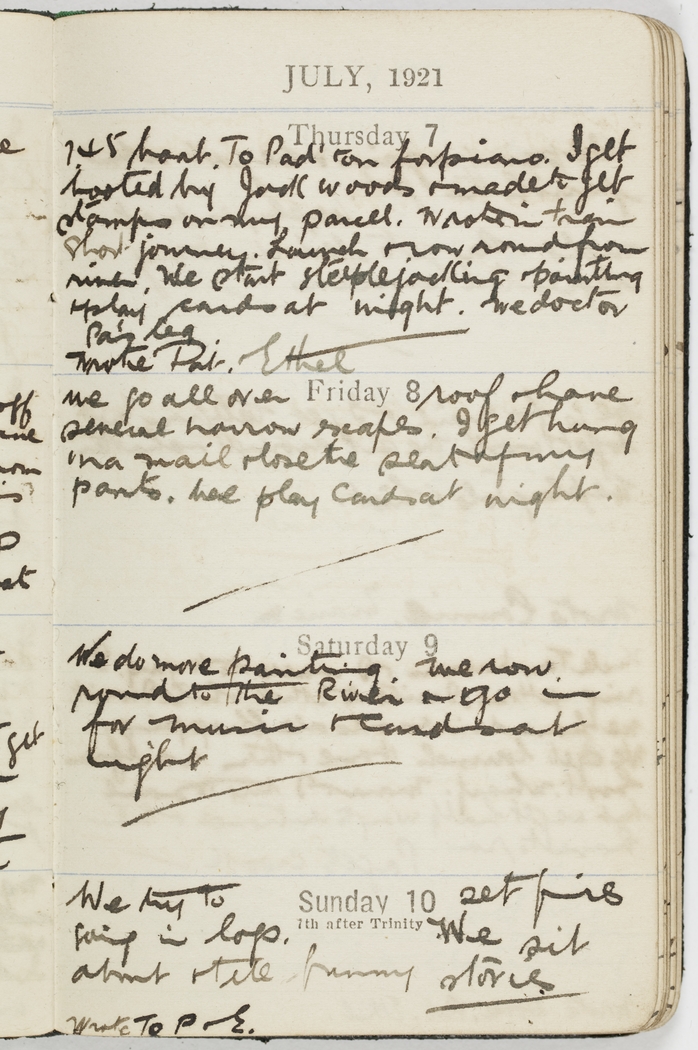 JULY, 1921
Thursday 7
1.45 boat. To Pad'ton for piano. I get
hooted by Jack woods & made to get
stamps on my parcel. Wrote in train
short journey. Launch & row round from
river. We start steeplejacking & painting
& play cards at night. We doctor
Pa's leg
Wrote Pat. Ethel
Friday 8
we go all over roof & have
several narrow escapes. I get hung
in a nail & lose the seat of my
pants. We play cards at night.
Saturday 9
We do more painting we row
round to the River & go in
for music & cards at
night
Sunday 10
7th after Trinity
We try to set fires
going in logs. We sit
about & tell funny stories
Wrote To P & E.